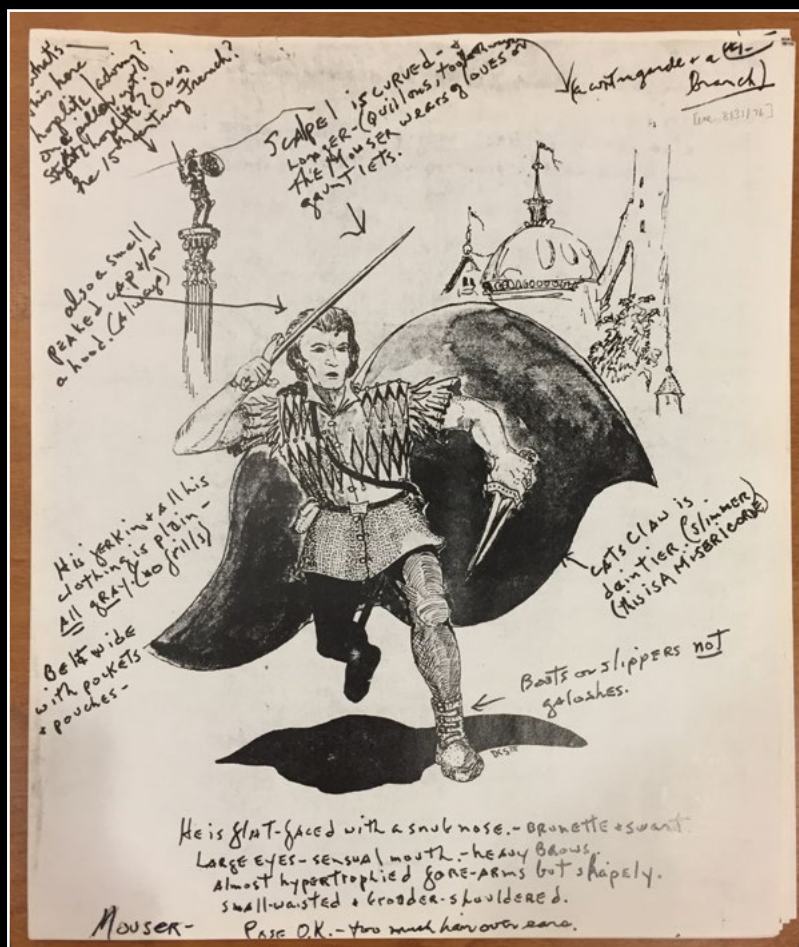 what's
this here
hoplite doing?
on a pillar using
style hoplite? Or is
he 15th century French?
SCAPEl is curved-&
LONGER-(Quillons, too although
the Mouser wears gloves or
gauntlets.
Branch)
[8/31/76]
also a small
PEAKED cap &/or
a hood. (Always)
His jerkin & All his
clothing is plain-
All gRAY (no frills)
Belt wide
with pockets
& pouches-
CATS CLAW is
daintier (slimmer)
(this is A Misericorde)
Boots or slippers not
galoshes.
DCS III
He is flat-faced with a snub nose.- BRUNETTE & swart
LARGE Eyes-sensual mouth.-heavy BROWS.
Almost hypertrophied fore-arms but shapely.
small-waisted & broader-shouldered.
Mouser- Pose O.K.-too much hair over ears.